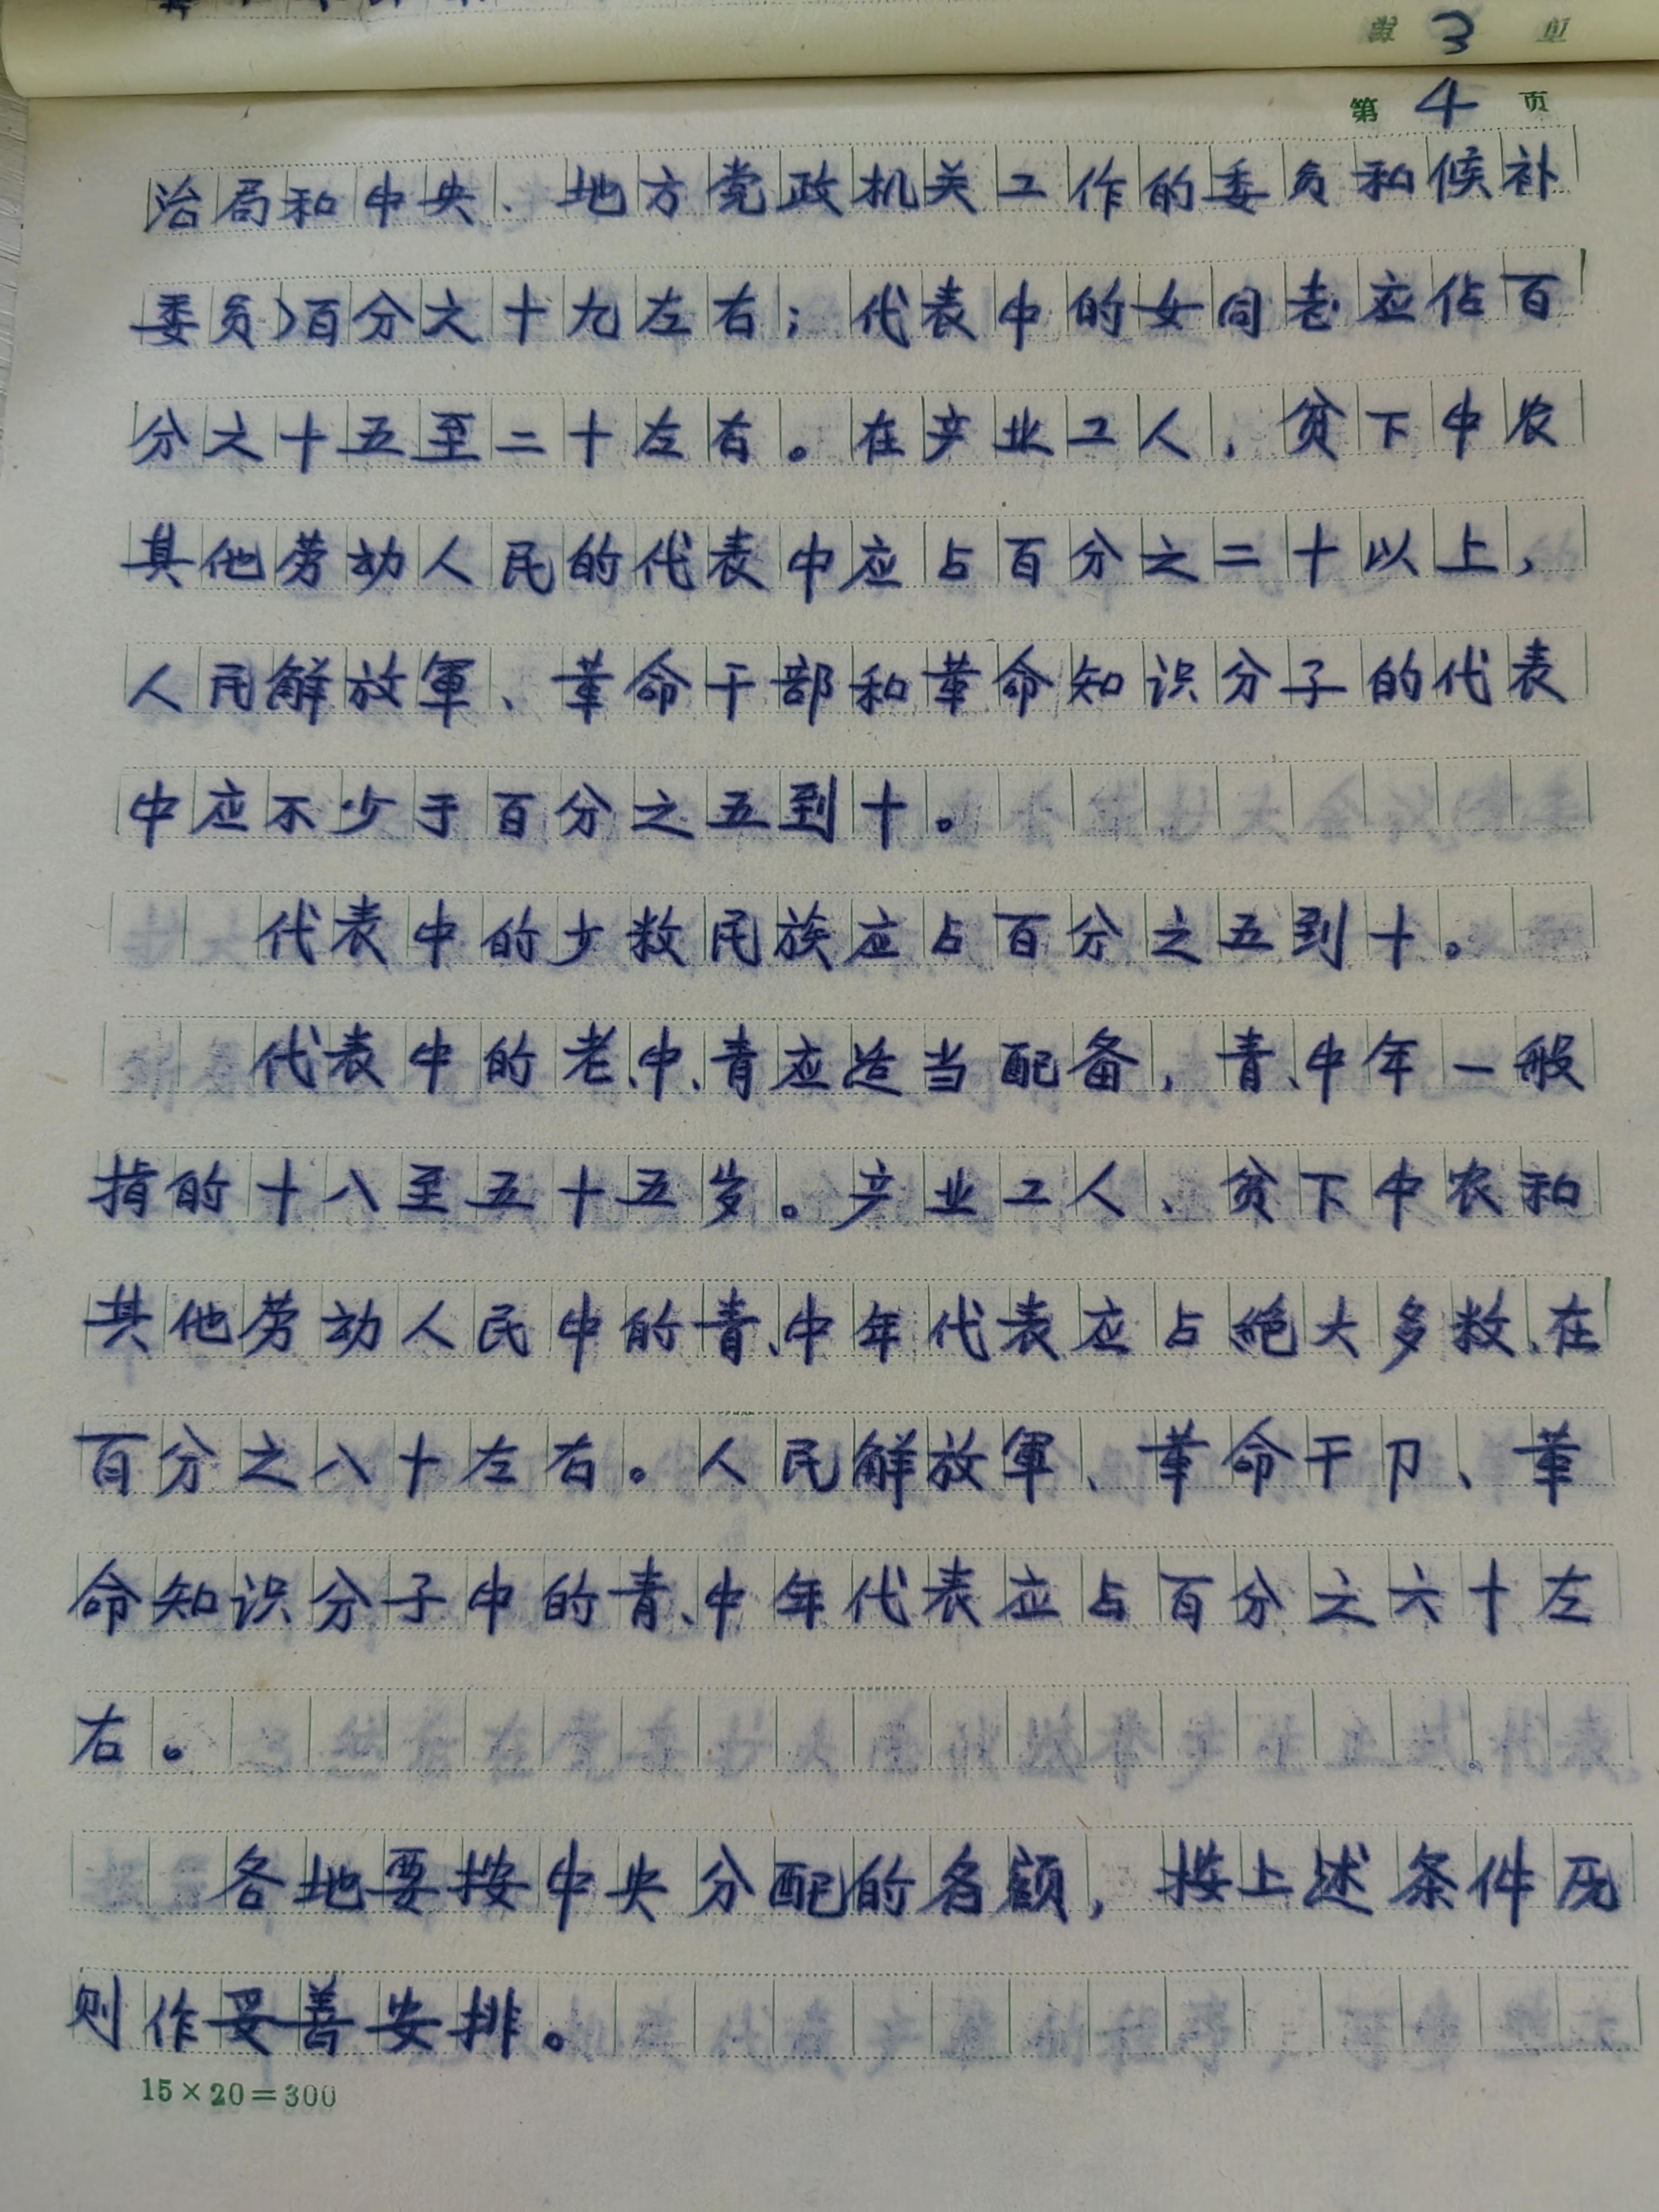 第 3 页
第 4 页
治局和中央、地方党政机关工作的委员和候补
委员)百分之十九左右；代表中的女同志应佔百
分之十五至二十左右。在产业工人，贫下中农
其他劳动人民的代表中应占百分之二十以上，
人民解放軍、革命干部和革命知识分子的代表
中应不少于百分之五到十。
代表中的少数民族应占百分之五到十。
代表中的老、中、青应适当配备，青、中年一般
指的十八至五十五岁。产业工人、贫下中农和
其他劳动人民中的青、中年代表应占絶大多数、在
百分之八十左右。人民解放軍、革命干卩、革
命知识分子中的青、中年代表应占百分之六十左
右。
各地要按中央分配的名额，按上述条件厡
则作妥善安排。
15×20=300